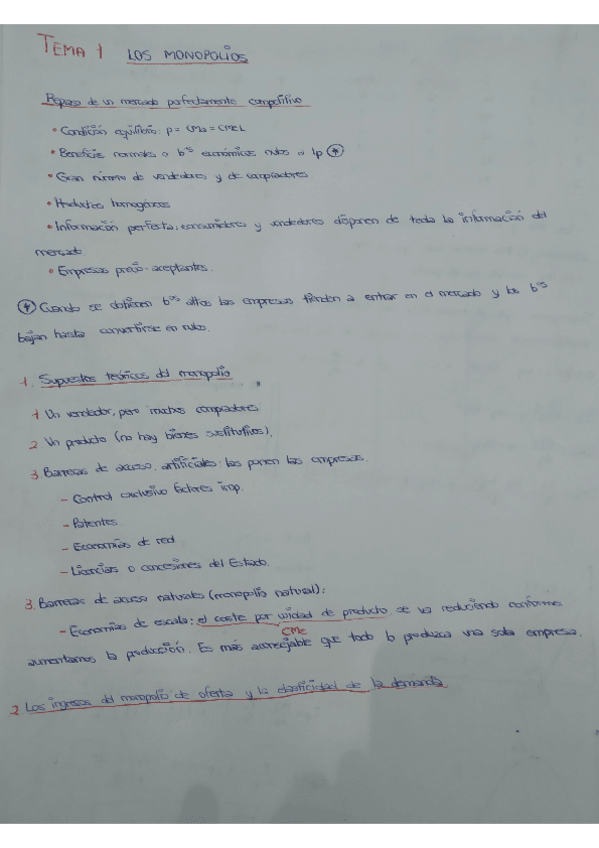 TEMA 1 LOS MONOPOLIOS
Repaso de un mercado perfectamente competitivo
• Condición equilibrio: p = CMa = CMeL
• Beneficios normales o bºs económicos nulos a lp (*)
• Gran número de vendedores y de compradores
• Productos homogéneos
• Información perfecta: consumidores y vendedores disponen de toda la información del
mercado
• Empresas precio-aceptantes.
(*) Cuando se obtienen bºs altos las empresas tienden a entrar en el mercado y los bºs
bajan hasta convertirse en nulos.
1. Supuestos teóricos del monopolio
1 Un vendedor, pero muchos compradores
2 Un producto (no hay bienes sustitutivos).
3 Barreras de acceso artificiales: las ponen las empresas.
- Control exclusivo factores imp.
- Patentes.
- Economías de red
- Licencias o concesiones del Estado.
3. Barreras de acceso naturales (monopolio natural):
- Economías de escala: el coste por unidad de producto se va reduciendo conforme
CMe
aumentamos la producción. Es más aconsejable que todo lo produzca una sola empresa.
2 Los ingresos del monopolio de oferta y la elasticidad de la demanda